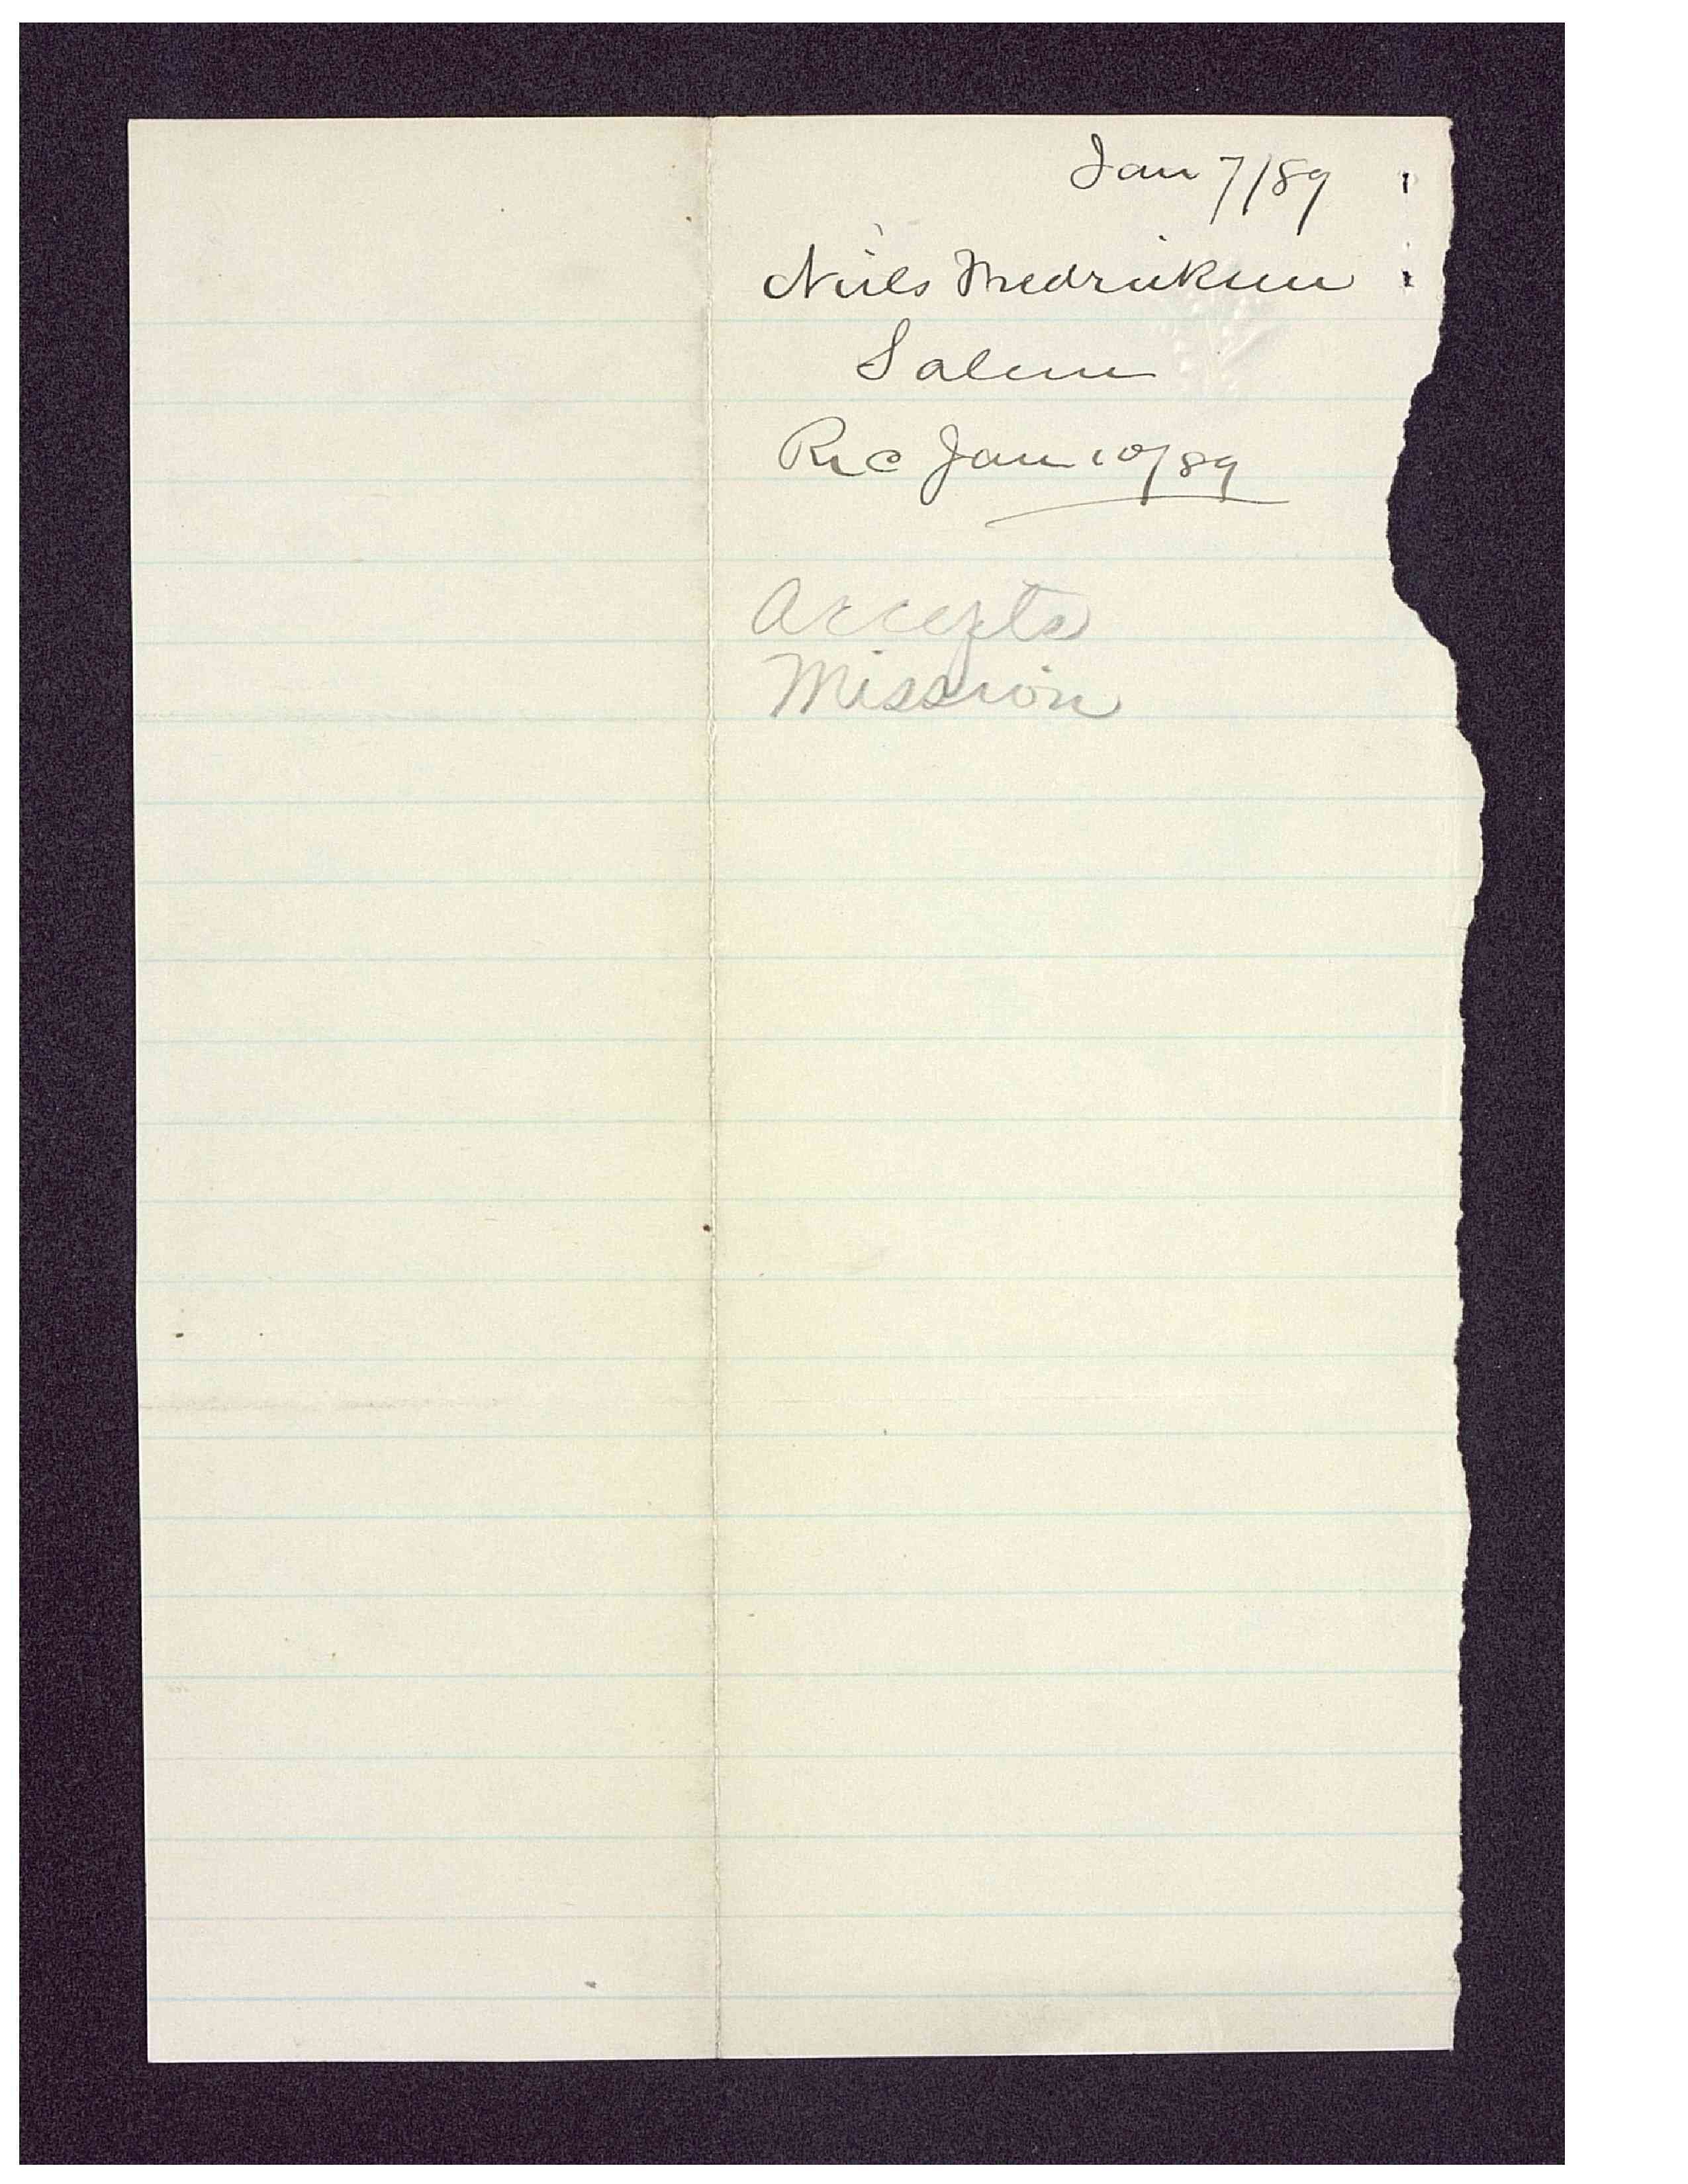 Jan 7/89
Niels Fredricksen
Salem
Rec Jan 10/89
Accepts
Mission